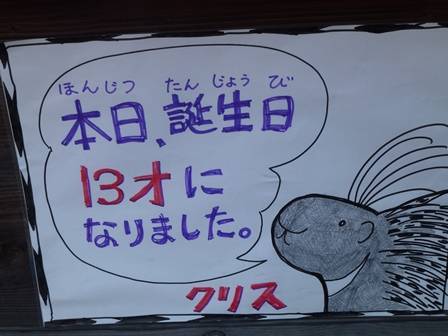 ほんじつ たんじょうび
本日、誕生日
13才に
なりました。
クリス